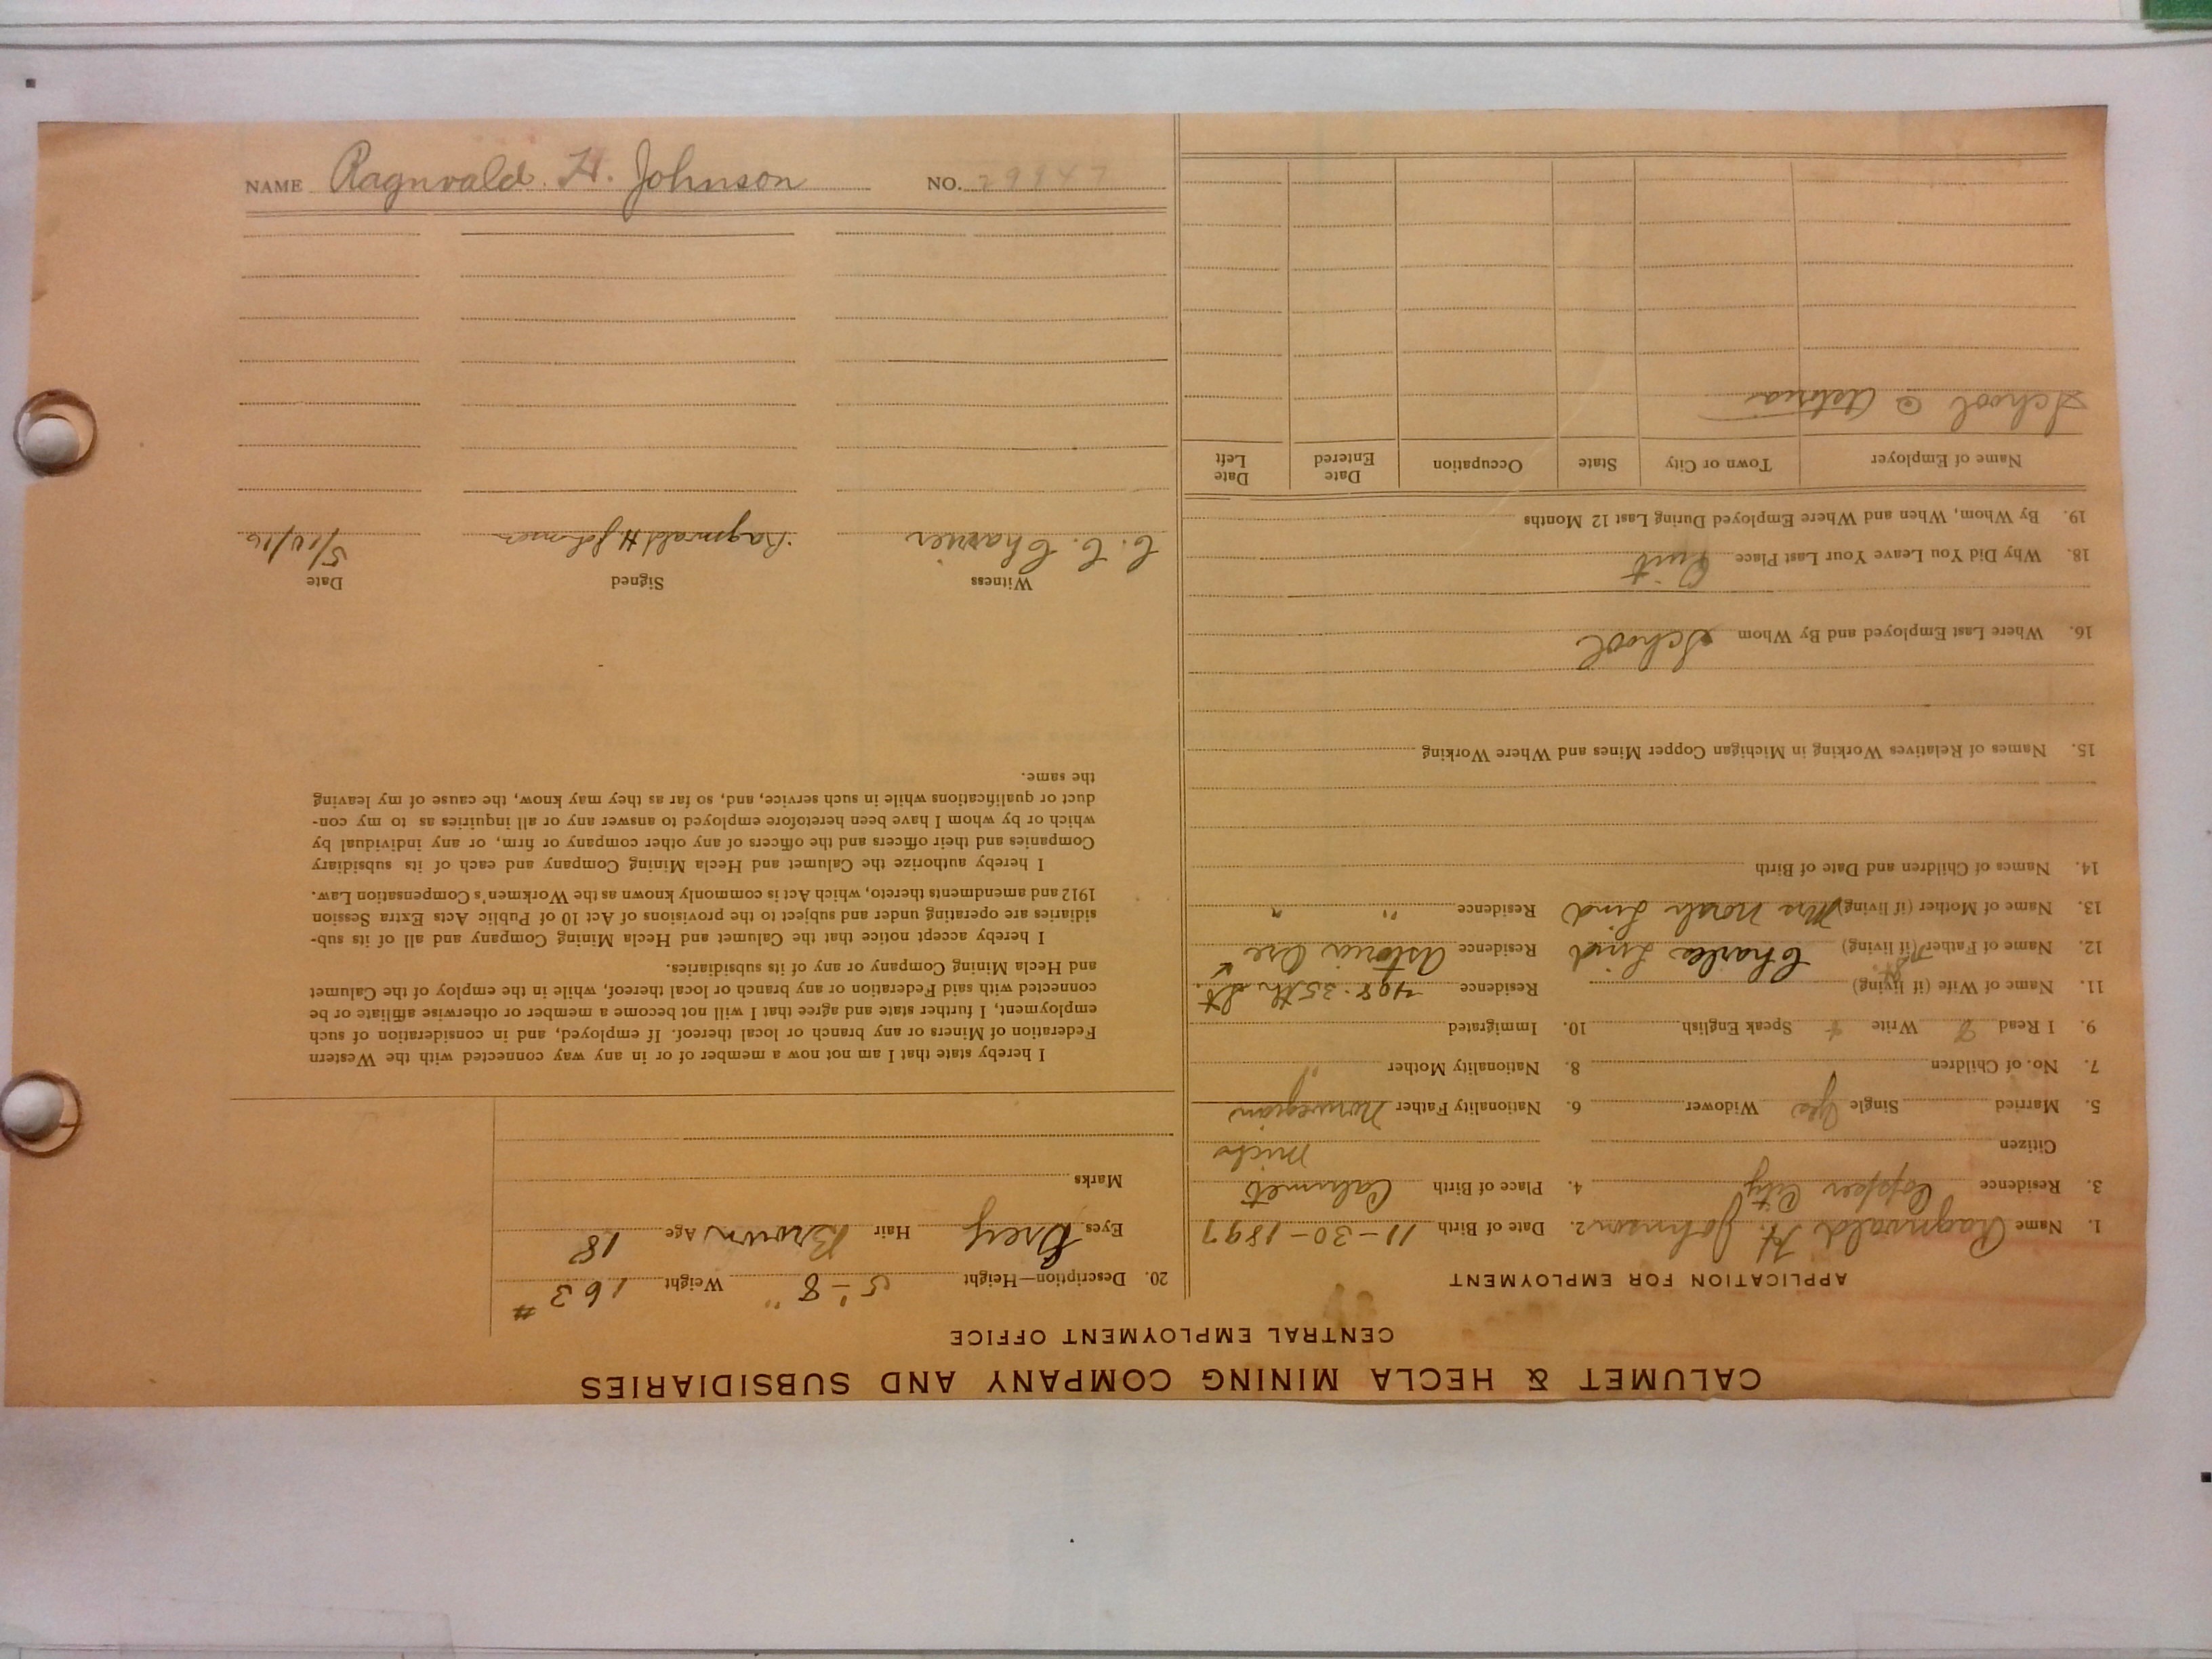 NAME Ragnvald H. Johnson NO. 29947
CALUMET & HECLA MINING COMPANY AND SUBSIDIARIES
CENTRAL EMPLOYMENT OFFICE
APPLICATION FOR EMPLOYMENT
1. Name Ragnvald H. Johnson 2. Date of Birth 11-30-1897
3. Residence Copper City 4. Place of Birth Calumet
Citizen Mich
5. Married Single Yes Widower 6. Nationality Father Norwegian
7. No. of Children 8. Nationality Mother "
9. I Read Write Speak English 10. Immigrated
11. Name of Wife (if living) Residence 498-35th St
12. Name of Father (if living) Charles Lind Residence Astoria Ore
13. Name of Mother (if living) Mrs Norah Lind Residence " "
14. Names of Children and Date of Birth
15. Names of Relatives Working in Michigan Copper Mines and Where Working
16. Where Last Employed and By Whom School
18. Why Did You Leave Your Last Place Quit
19. By Whom, When and Where Employed During Last 12 Months
Name of Employer Town or City State Occupation Date Entered Date Left
School @ Astoria
20. Description—Height 5'-8" Weight 163 #
Eyes Grey Hair Brown Age 18
Marks
I hereby state that I am not now a member of or in any way connected with the Western
Federation of Miners or any branch or local thereof. If employed, and in consideration of such
employment, I further state and agree that I will not become a member or otherwise affiliate or be
connected with said Federation or any branch or local thereof, while in the employ of the Calumet
and Hecla Mining Company or any of its subsidiaries.
I hereby accept notice that the Calumet and Hecla Mining Company and all of its sub-
sidiaries are operating under and subject to the provisions of Act 10 of Public Acts Extra Session
1912 and amendments thereto, which Act is commonly known as the Workmen's Compensation Law.
I hereby authorize the Calumet and Hecla Mining Company and each of its subsidiary
Companies and their officers and the officers of any other company or firm, or any individual by
which or by whom I have been heretofore employed to answer any or all inquiries as to my con-
duct or qualifications while in such service, and, so far as they may know, the cause of my leaving
the same.
Witness Signed Date
C. C. Charier Ragnvald H Johnson 5/10/16